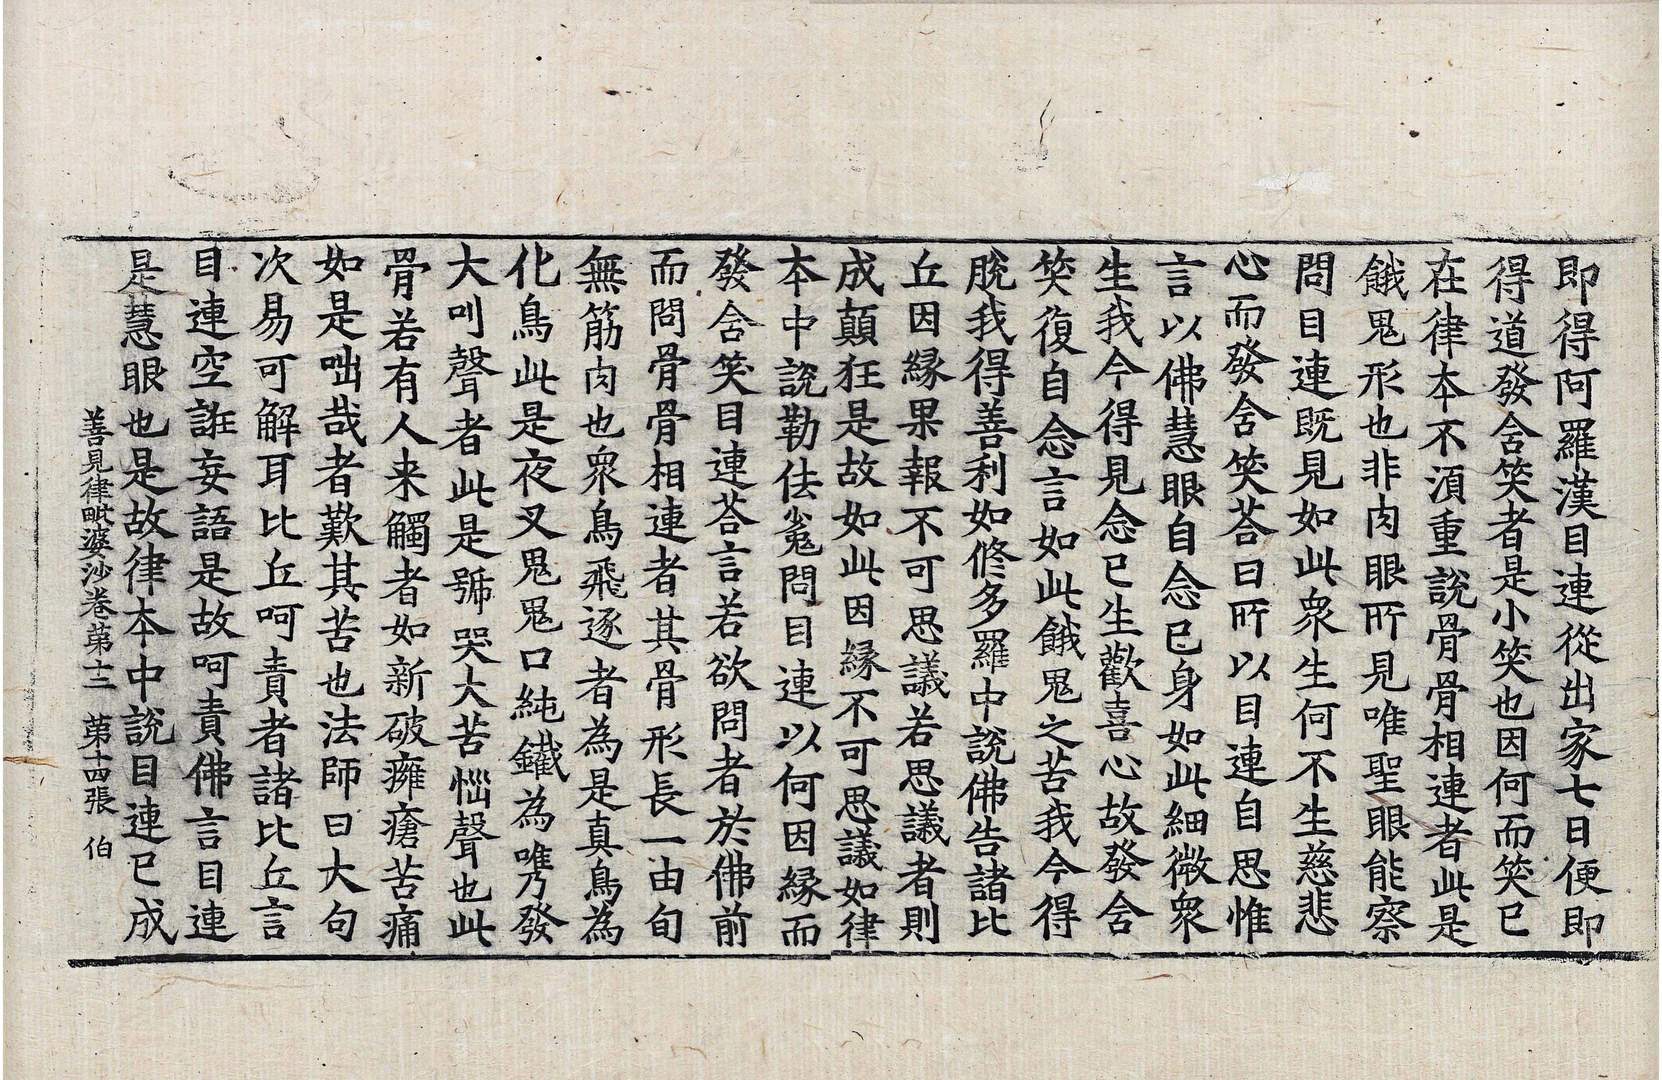 即得阿羅漢目連從出家七日便即
得道發舍笑者是小笑也因何而笑已
在律本不湏重說骨骨相連者此是
餓鬼形也非肉眼所見唯聖眼能察
問目連既見如此衆生何不生慈悲
心而發舍笑荅曰所以目連自思惟
言以佛慧眼自念已身如此細微衆
生我今得見念已生歡喜心故發舍
笑復自念言如此餓鬼之苦我今得
脫我得善利如修多羅中說佛告諸比
丘因緣果報不可思議若思議者則
成顛狂是故如此因緣不可思議如律
本中說勒佉㝹問目連以何因緣而
發舍笑目連荅言若欲問者於佛前
而問骨骨相連者其骨形長一由旬
無筋肉也衆鳥飛逐者為是真鳥為
化鳥此是夜叉鬼鬼口純鐵為㗻發
大叫聲者此是號哭大苦惱聲也此
骨若有人来觸者如新破癰瘡苦痛
如是咄哉者歎其苦也法師曰大句
次易可解耳比丘呵責者諸比丘言
目連空誑妄語是故呵責佛言目連
是慧眼也是故律本中說目連已成
善見律毗婆沙卷第十二 第十四張 伯